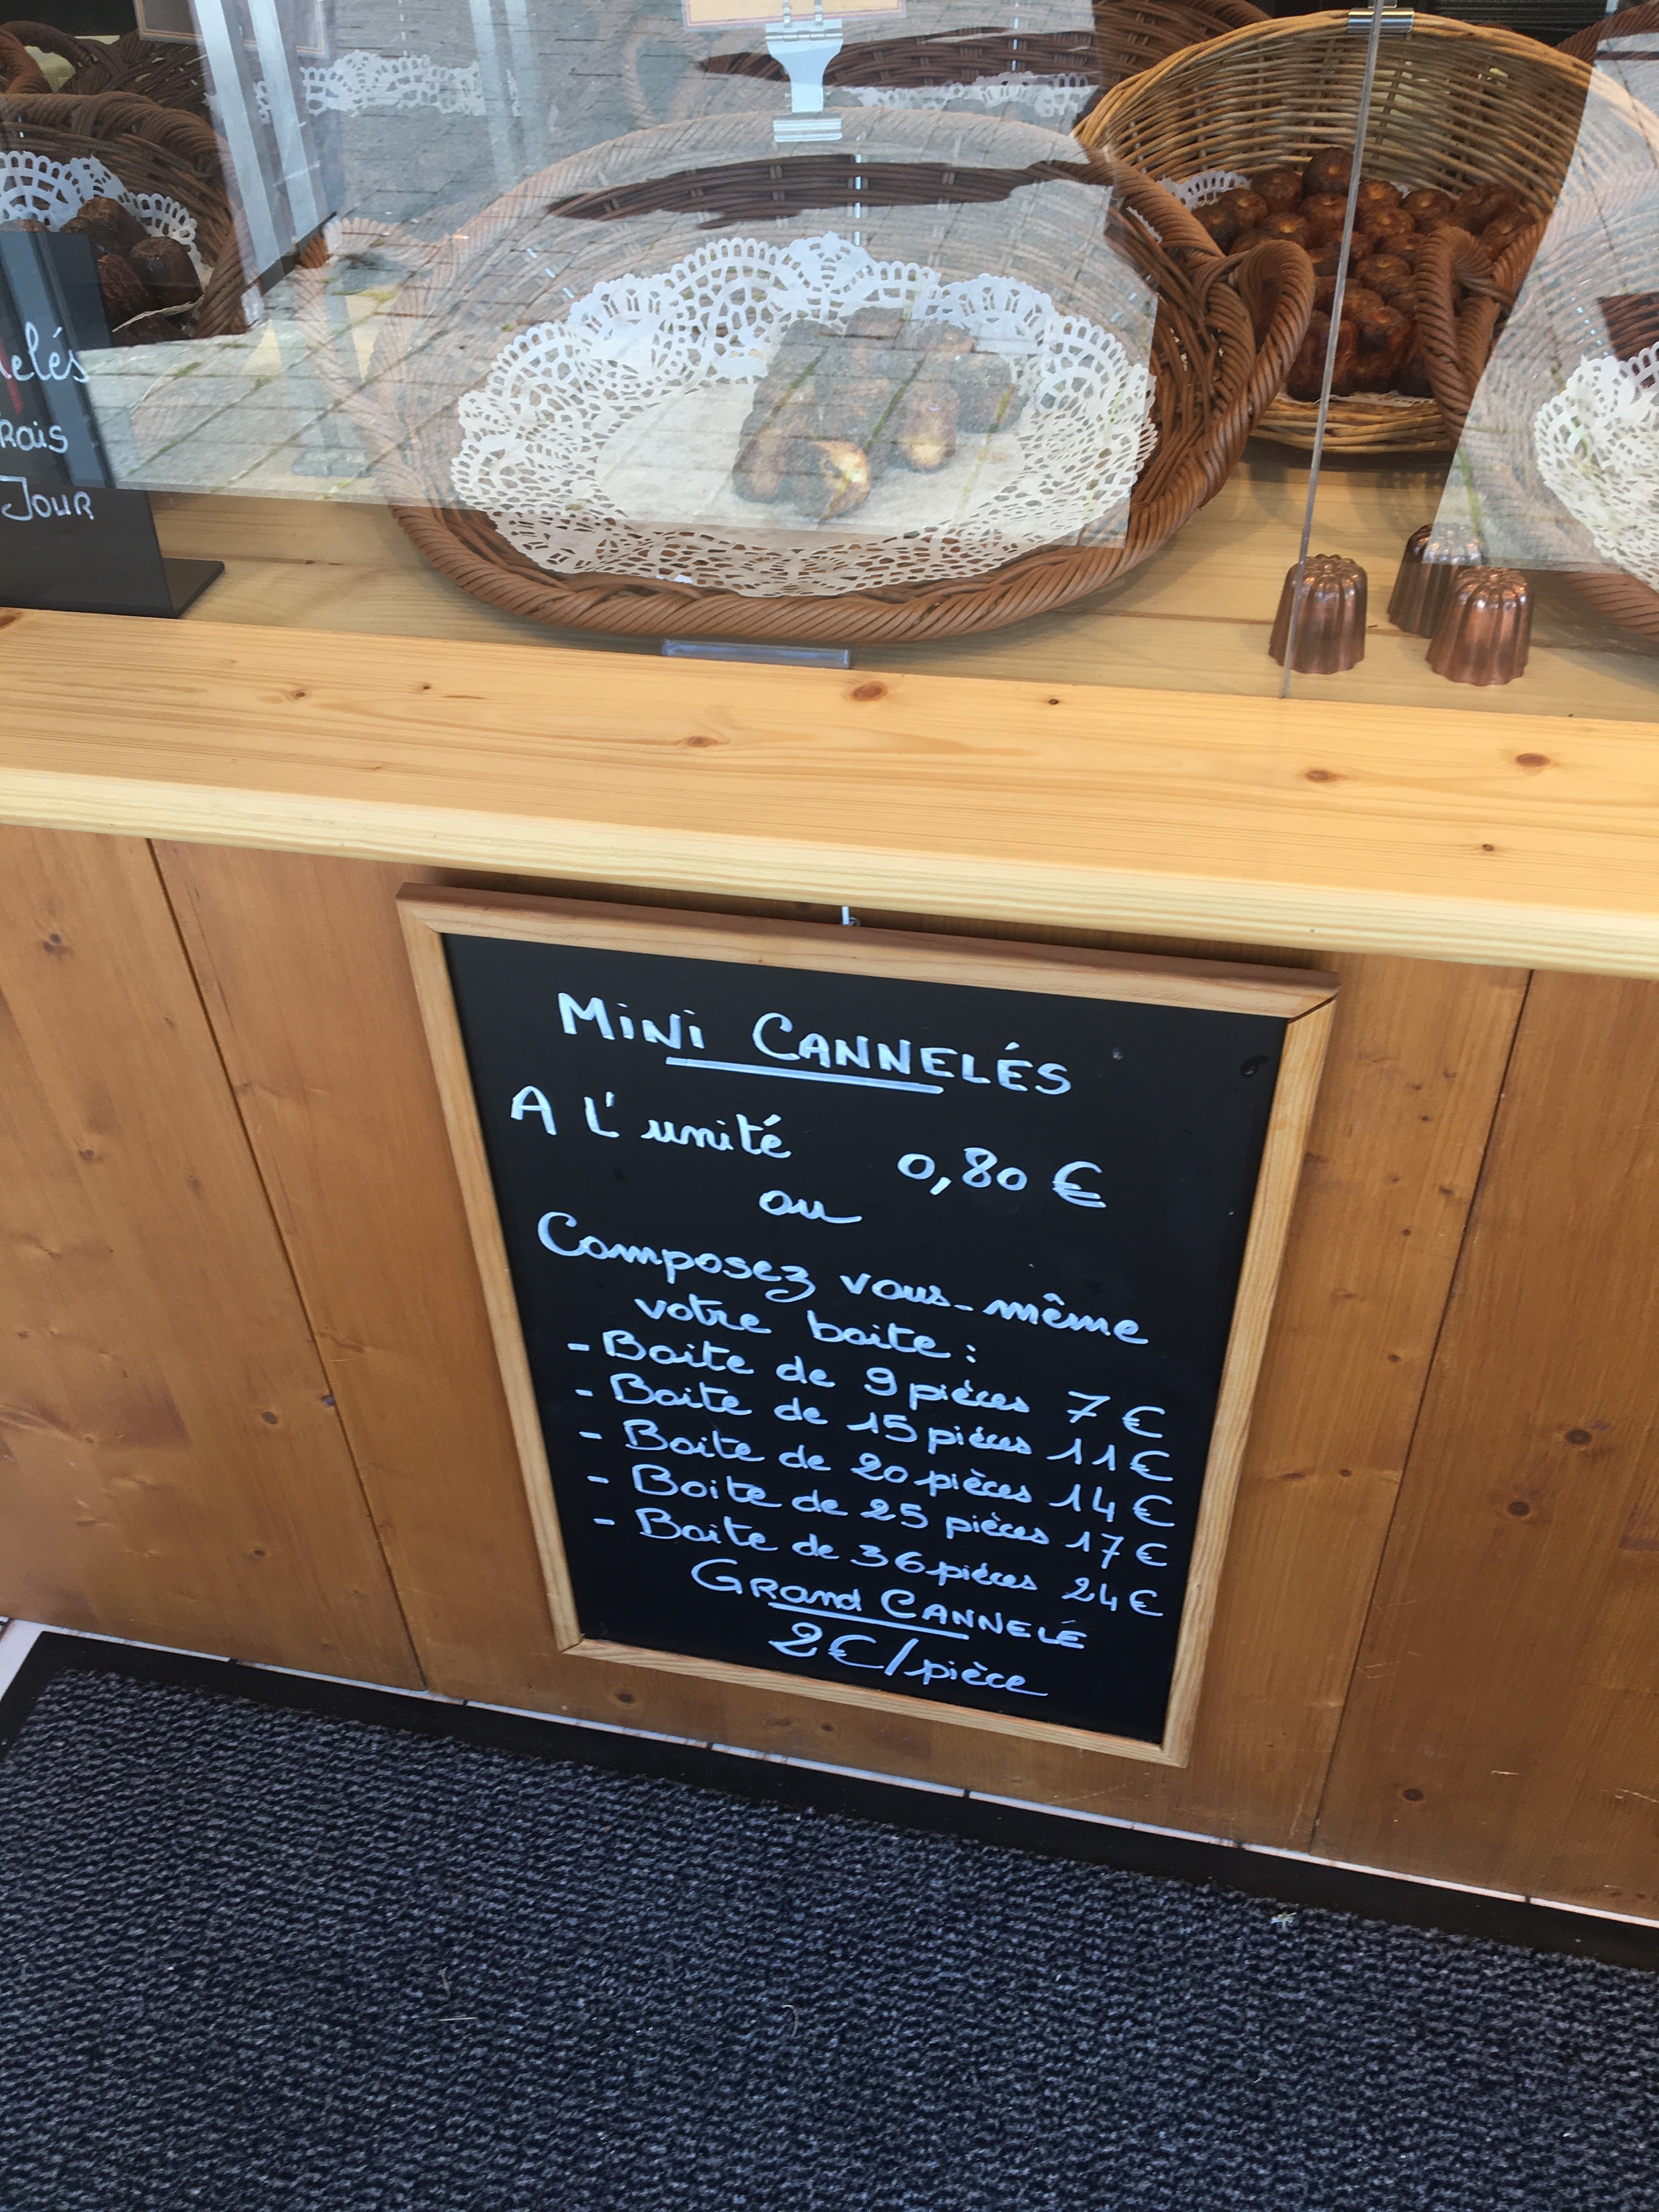 elés
Rais
Jour
Mini Cannelés
A L'unité 0,80 €
ou
Composez vous-même
votre boite :
- Boite de 9 pièces 7 €
- Boite de 15 pièces 11 €
- Boite de 20 pièces 14 €
- Boite de 25 pièces 17 €
- Boite de 36 pièces 24 €
Grand Cannelé
2€/pièce